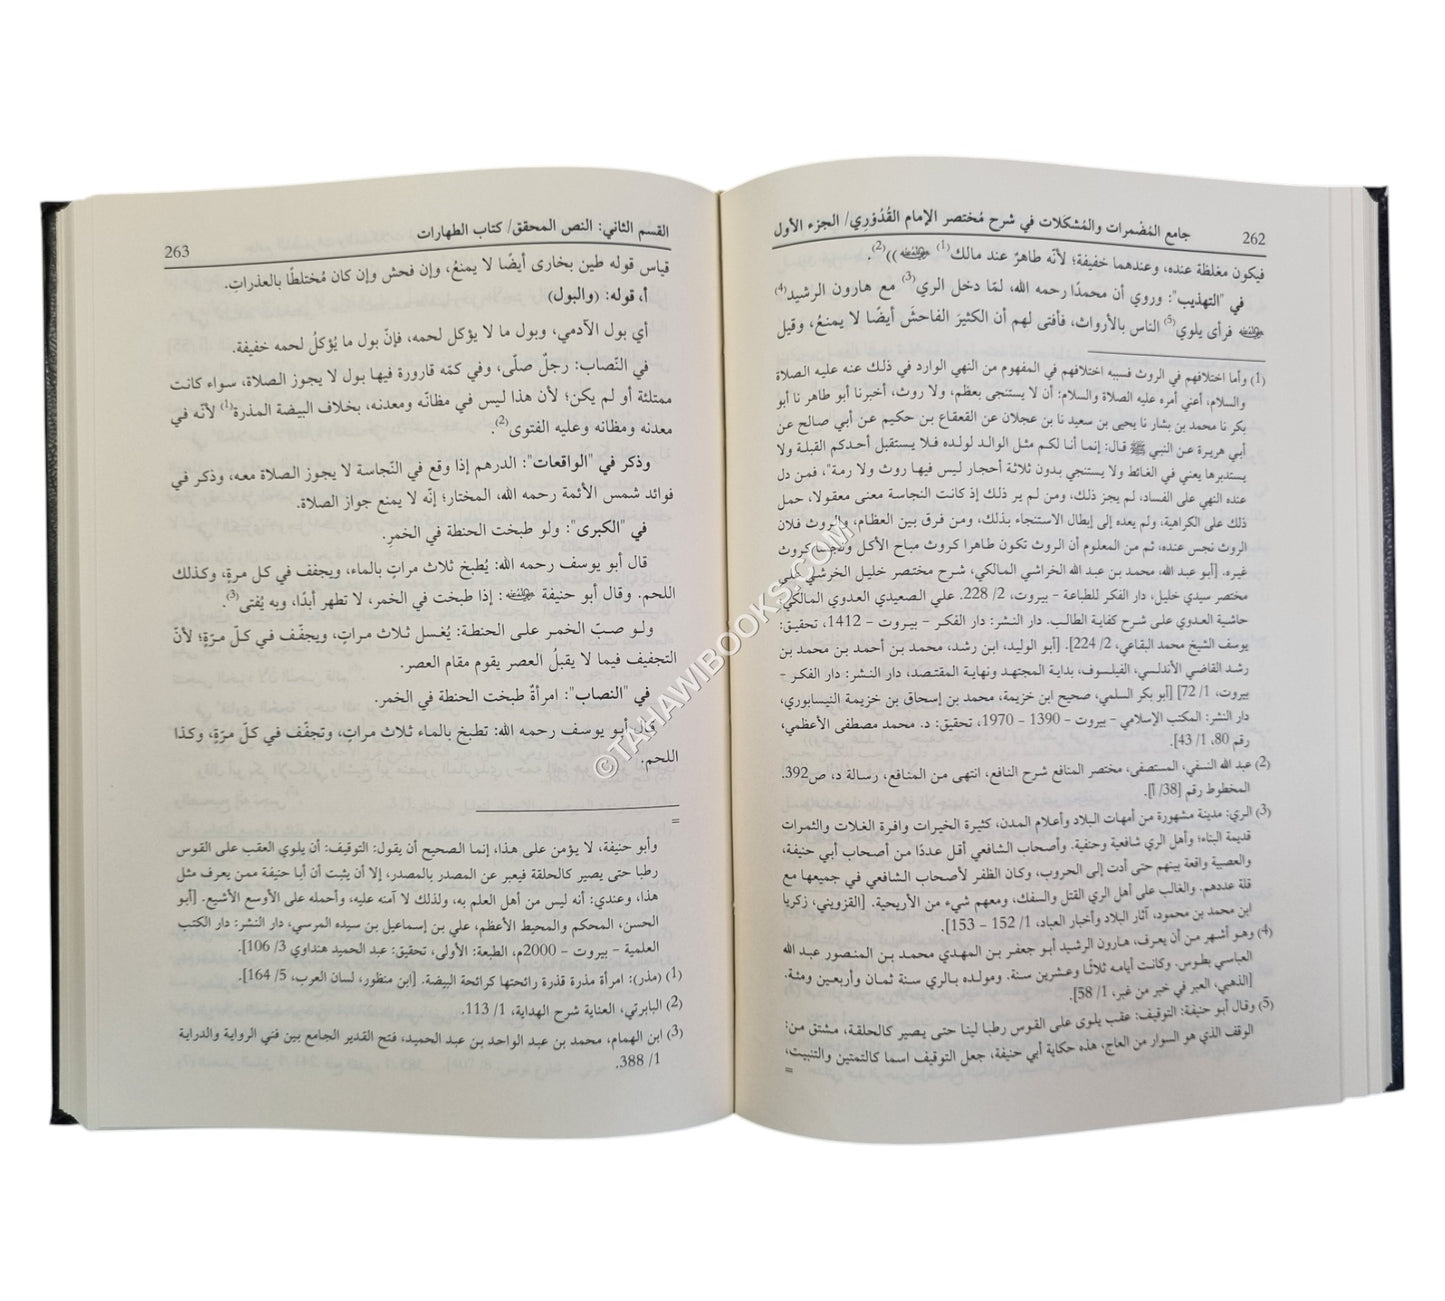 262 جامع المُضمرات والمُشكلات في شرح مُختصر الإمام القُدُوْرِي/ الجزء الأول
فيكون مغلظة عنده، وعندهما خفيفة؛ لأنّه طاهرٌ عند مالك(1) ))(2).
في "التهذيب": وروي أن محمدًا رحمه الله، لمّا دخل الري(3) مع هارون الرشيد(4)
فرأى يلوي(5) الناس بالأرواث، فأفتى لهم أن الكثيرَ الفاحشَ أيضًا لا يمنعُ، وقيل
(1) وأما اختلافهم في الروث فسببه اختلافهم في المفهوم من النهي الوارد في ذلك عنه عليه الصلاة
والسلام، أعني أمره عليه الصلاة والسلام: أن لا يستنجى بعظم، ولا روث، أخبرنا أبو طاهر نا أبو
بكر نا محمد بن بشار نا يحيى بن سعيد نا بن عجلان عن القعقاع بن حكيم عن أبي صالح عن
أبي هريرة عن النبي ﷺ قال: إنما أنا لكم مثل الوالد لولده فلا يستقبل أحدكم القبلة ولا
يستدبرها يعني في الغائط ولا يستنجي بدون ثلاثة أحجار ليس فيها روث ولا رمة"، فمن دل
عنده النهي على الفساد، لم يجز ذلك، ومن لم ير ذلك إذ كانت النجاسة معنى معقولا، حمل
ذلك على الكراهية، ولم يعده إلى إبطال الاستنجاء بذلك، ومن فرق بين العظام، والروث فلان
الروث نجس عنده، ثم من المعلوم أن الروث تكون طاهرا كروث مباح الأكل ونجسا كروث
غيره. [أبو عبد الله، محمد بن عبد الله الخراشي المالكي، شرح مختصر خليل الخرشي على
مختصر سيدي خليل، دار الفكر للطباعة – بيروت، 2/ 228. علي الصعيدي العدوي المالكي،
حاشية العدوي على شرح كفاية الطالب. دار النشر: دار الفكر – بيروت – 1412، تحقيق:
يوسف الشيخ محمد البقاعي، 2/ 224]. [أبو الوليد، ابن رشد، محمد بن أحمد بن محمد بن
رشد القاضي الأندلسي، الفيلسوف، بداية المجتهد ونهاية المقتصد، دار النشر: دار الفكر –
بيروت، 1/ 72] [أبو بكر السلمي، صحيح ابن خزيمة، محمد بن إسحاق بن خزيمة النيسابوري،
دار النشر: المكتب الإسلامي – بيروت – 1390 – 1970، تحقيق: د. محمد مصطفى الأعظمي،
رقم 80، 1/ 43].
(2) عبد الله النسفي، المستصفى، مختصر المنافع شرح النافع، انتهى من المنافع، رسالة د، ص392.
المخطوط رقم [38/ أ].
(3) الري: مدينة مشهورة من أمهات البلاد وأعلام المدن، كثيرة الخيرات وافرة الغلات والثمرات
قديمة البناء؛ وأهل الري شافعية وحنفية. وأصحاب الشافعي أقل عددًا من أصحاب أبي حنيفة،
والعصبية واقعة بينهم حتى أدت إلى الحروب، وكان الظفر لأصحاب الشافعي في جميعها مع
قلة عددهم. والغالب على أهل الري القتل والسفك، ومعهم شيء من الأريحية. [القزويني، زكريا
ابن محمد بن محمود، آثار البلاد وأخبار العباد، 1/ 152 – 153].
(4) وهو أشهر من أن يعرف، هارون الرشيد أبو جعفر بن المهدي محمد بن المنصور عبد الله
العباسي بطوس. وكانت أيامه ثلاثًا وعشرين سنة. ومولده بالري سنة ثمان وأربعين ومئة.
[الذهبي، العبر في خبر من غبر، 1/ 58].
(5) وقال أبو حنيفة: التوقيف: عقب يلوى على القوس رطبا لينا حتى يصير كالحلقة، مشتق من:
الوقف الذي هو السوار من العاج، هذه حكاية أبي حنيفة، جعل التوقيف اسما كالتمتين والتنبيت،
=
القسم الثاني: النص المحقق/ كتاب الطهارات 263
قياس قوله طين بخارى أيضًا لا يمنعُ، وإن فحش وإن كان مُختلطًا بالعذراتِ.
أ، قوله: (والبول)
أي بول الآدمي، وبول ما لا يؤكل لحمه، فإنّ بول ما يُؤكلُ لحمه خفيفة.
في النّصاب: رجلٌ صلّى، وفي كمّه قارورة فيها بول لا يجوز الصلاة، سواء كانت
ممتلئة أو لم يكن؛ لأن هذا ليس في مظانّه ومعدنه، بخلاف البيضة المذرة(1) لأنّه في
معدنه ومظانه وعليه الفتوى(2).
وذكر في "الواقعات": الدرهم إذا وقع في النّجاسة لا يجوز الصلاة معه، وذكر في
فوائد شمس الأئمة رحمه الله، المختار؛ إنّه لا يمنع جواز الصلاة.
في "الكبرى": ولو طبخت الحنطة في الخمرِ.
قال أبو يوسف رحمه الله: يُطبخ ثلاث مراتٍ بالماء، ويجفف في كل مرةٍ، وكذلك
اللحم. وقال أبو حنيفة : إذا طبخت في الخمر، لا تطهر أبدًا، وبه يُفتى(3).
ولو صبّ الخمر على الحنطة: يُغسل ثلاث مراتٍ، ويجفّف في كلّ مرّةٍ؛ لأنّ
التجفيف فيما لا يقبلُ العصر يقوم مقام العصر.
في "النصاب": امرأةٌ طبخت الحنطة في الخمر.
قال أبو يوسف رحمه الله: تطبخ بالماء ثلاث مراتٍ، وتجفّف في كلّ مرّةٍ، وكذا
اللحم.
=
وأبو حنيفة، لا يؤمن على هذا، إنما الصحيح أن يقول: التوقيف: أن يلوي العقب على القوس
رطبا حتى يصير كالحلقة فيعبر عن المصدر بالمصدر، إلا أن يثبت أن أبا حنيفة ممن يعرف مثل
هذا، وعندي: أنه ليس من أهل العلم به، ولذلك لا آمنه عليه، وأحمله على الأوسع الأشيع. [أبو
الحسن، المحكم والمحيط الأعظم، علي بن إسماعيل بن سيده المرسي، دار النشر: دار الكتب
العلمية – بيروت – 2000م، الطبعة: الأولى، تحقيق: عبد الحميد هنداوي 3/ 106].
(1) (مذر): امرأة مذرة قذرة رائحتها كرائحة البيضة. [ابن منظور، لسان العرب، 5/ 164].
(2) البابرتي، العناية شرح الهداية، 1/ 113.
(3) ابن الهمام، محمد بن عبد الواحد بن عبد الحميد، فتح القدير الجامع بين فني الرواية والدراية
1/ 388.
©TAHAWIBOOKS.COM